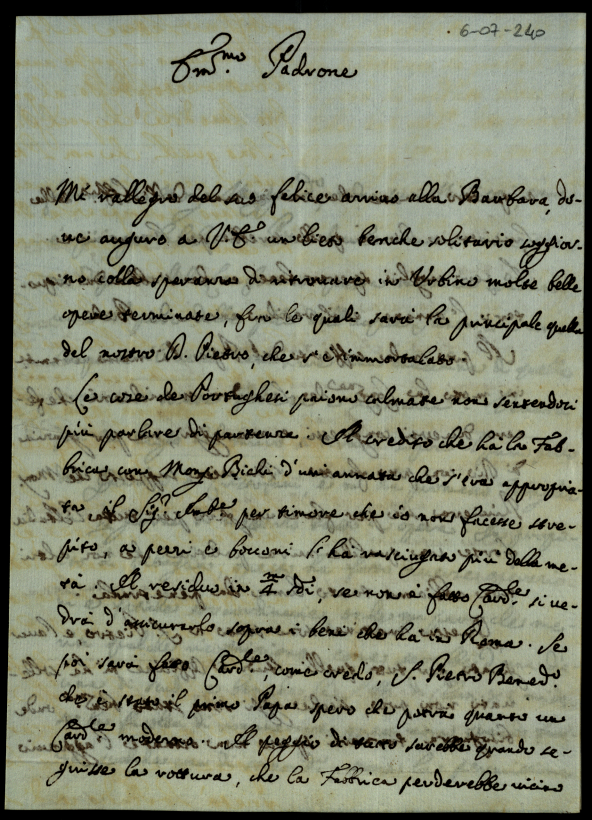 6-07-240
Em.mo Padrone
Mi rallegro del suo felice arrivo alla Barbara, do-
ve auguro a V. E. un lieto benche solitario soggior-
no colla speranza di ritrovare in Urbino molte belle
opere terminate, fra le quali sarà la principale quella
del nostro D. Pietro, che s'è immortalato.
Le cose de Portughesi paiono calmate non sentendosi
più parlare di partenza. Il credito che ha la Fab-
brica con Mons. Bichi d'un'annata che s'era appropria-
ta il Sig. per timore che io non facesse stre-
pito, a pezzi e bocconi s'ha rasciugato più della me-
tà. Il residuo in 4 m sdi, se non è fatto Card.le si ve-
drà d'assicurarlo sopra i beni che ha in Roma. Se
poi sarà fatto Card.le, come credo, S. Pietro Bened.
che è stato il primo Papa spero che potrà quanto un
Card.le moderno. Il peggio di tutto sarebbe quando se-
guisse la rottura, che la Fabbrica perderebbe vicino